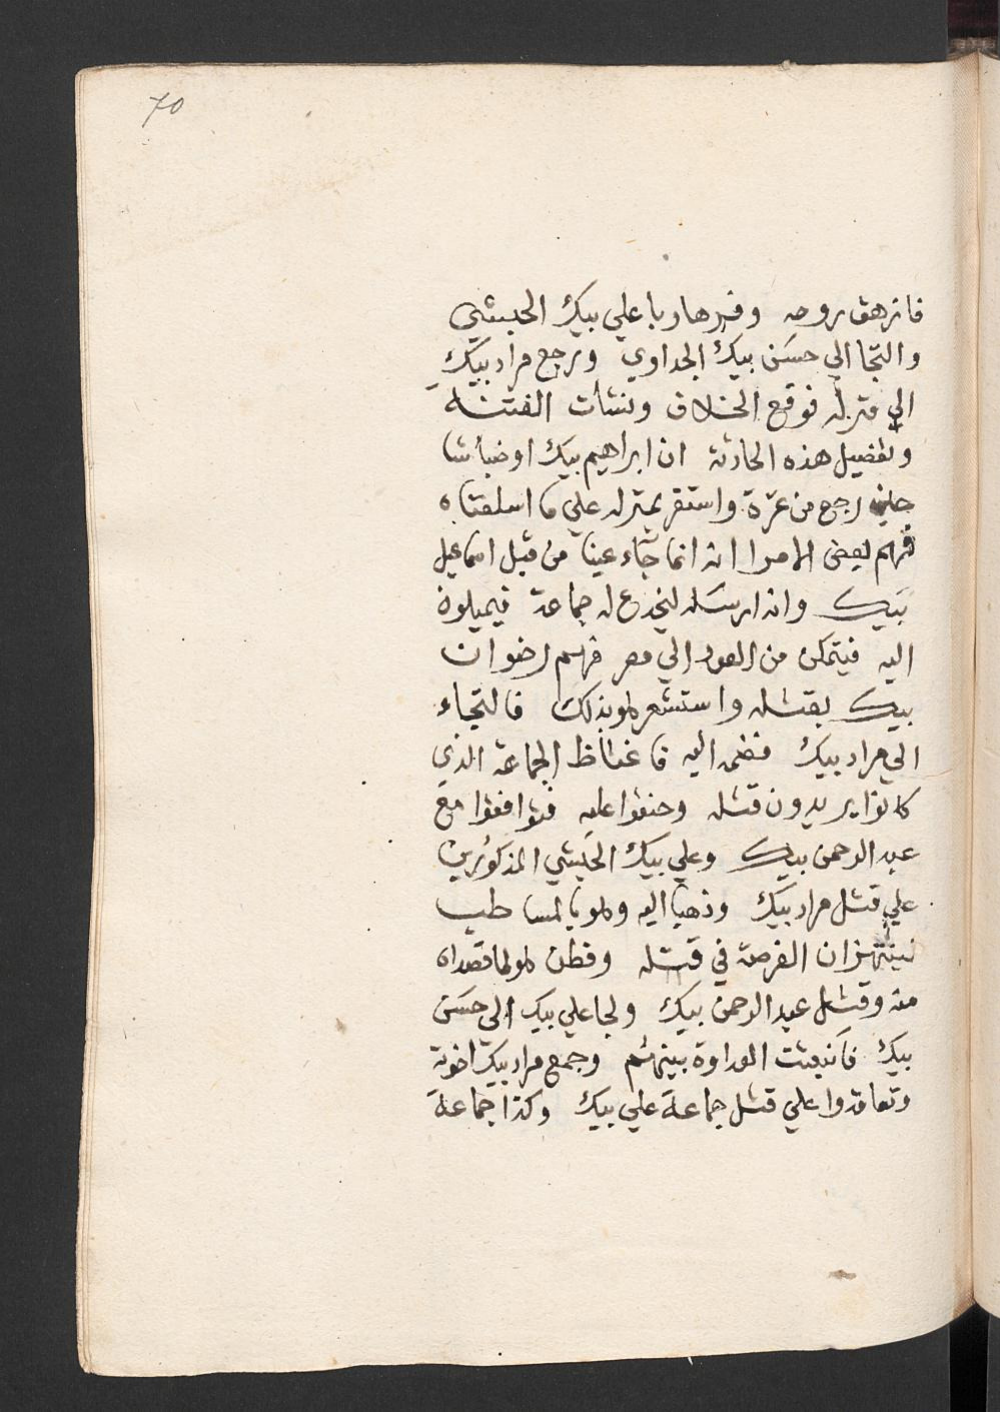 70
فازهق روحه وفر هاربا علي بيك الحبشي
والتجا الي حسن بيك الجداوي ورجع مراد بيك
الي منزله فوقع الخلاف ونشأت الفتنه
وتفضيل هذه الحادثة ان ابراهيم بيك اوضباشا
حين رجع من غزة واستقر بمنزله علي ما اسلفناه
فهم بعض الامرا انه انما جآء عينا من قبل اسماعيل
بيك وانه ارسله ليخدع له جماعة فيميلون
اليه فيتمكن من العود الي مصر فهم رضوان
بيك بقتله واستشعر هو بذلك فالتجاء
الي مراد بيك فضمه اليه فاغتاظ الجماعة الذي
كانوا يريدون قتله وحنقوا عليه فتوافقوا مع
عبد الرحمن بيك وعلي بيك الحبشي المذكورين
علي قتل مراد بيك وذهبا اليه وهو بالمساطب
لينتهزان الفرصة في قتله وفطن هو لما قصداه
منه وقتل عبد الرحمن بيك ولجا علي بيك الي حسن
بيك فانبعثت العداوة بينهم وجمع مراد بيك اخوته
وتعاقدوا علي قتل جماعة علي بيك وكذا جماعة